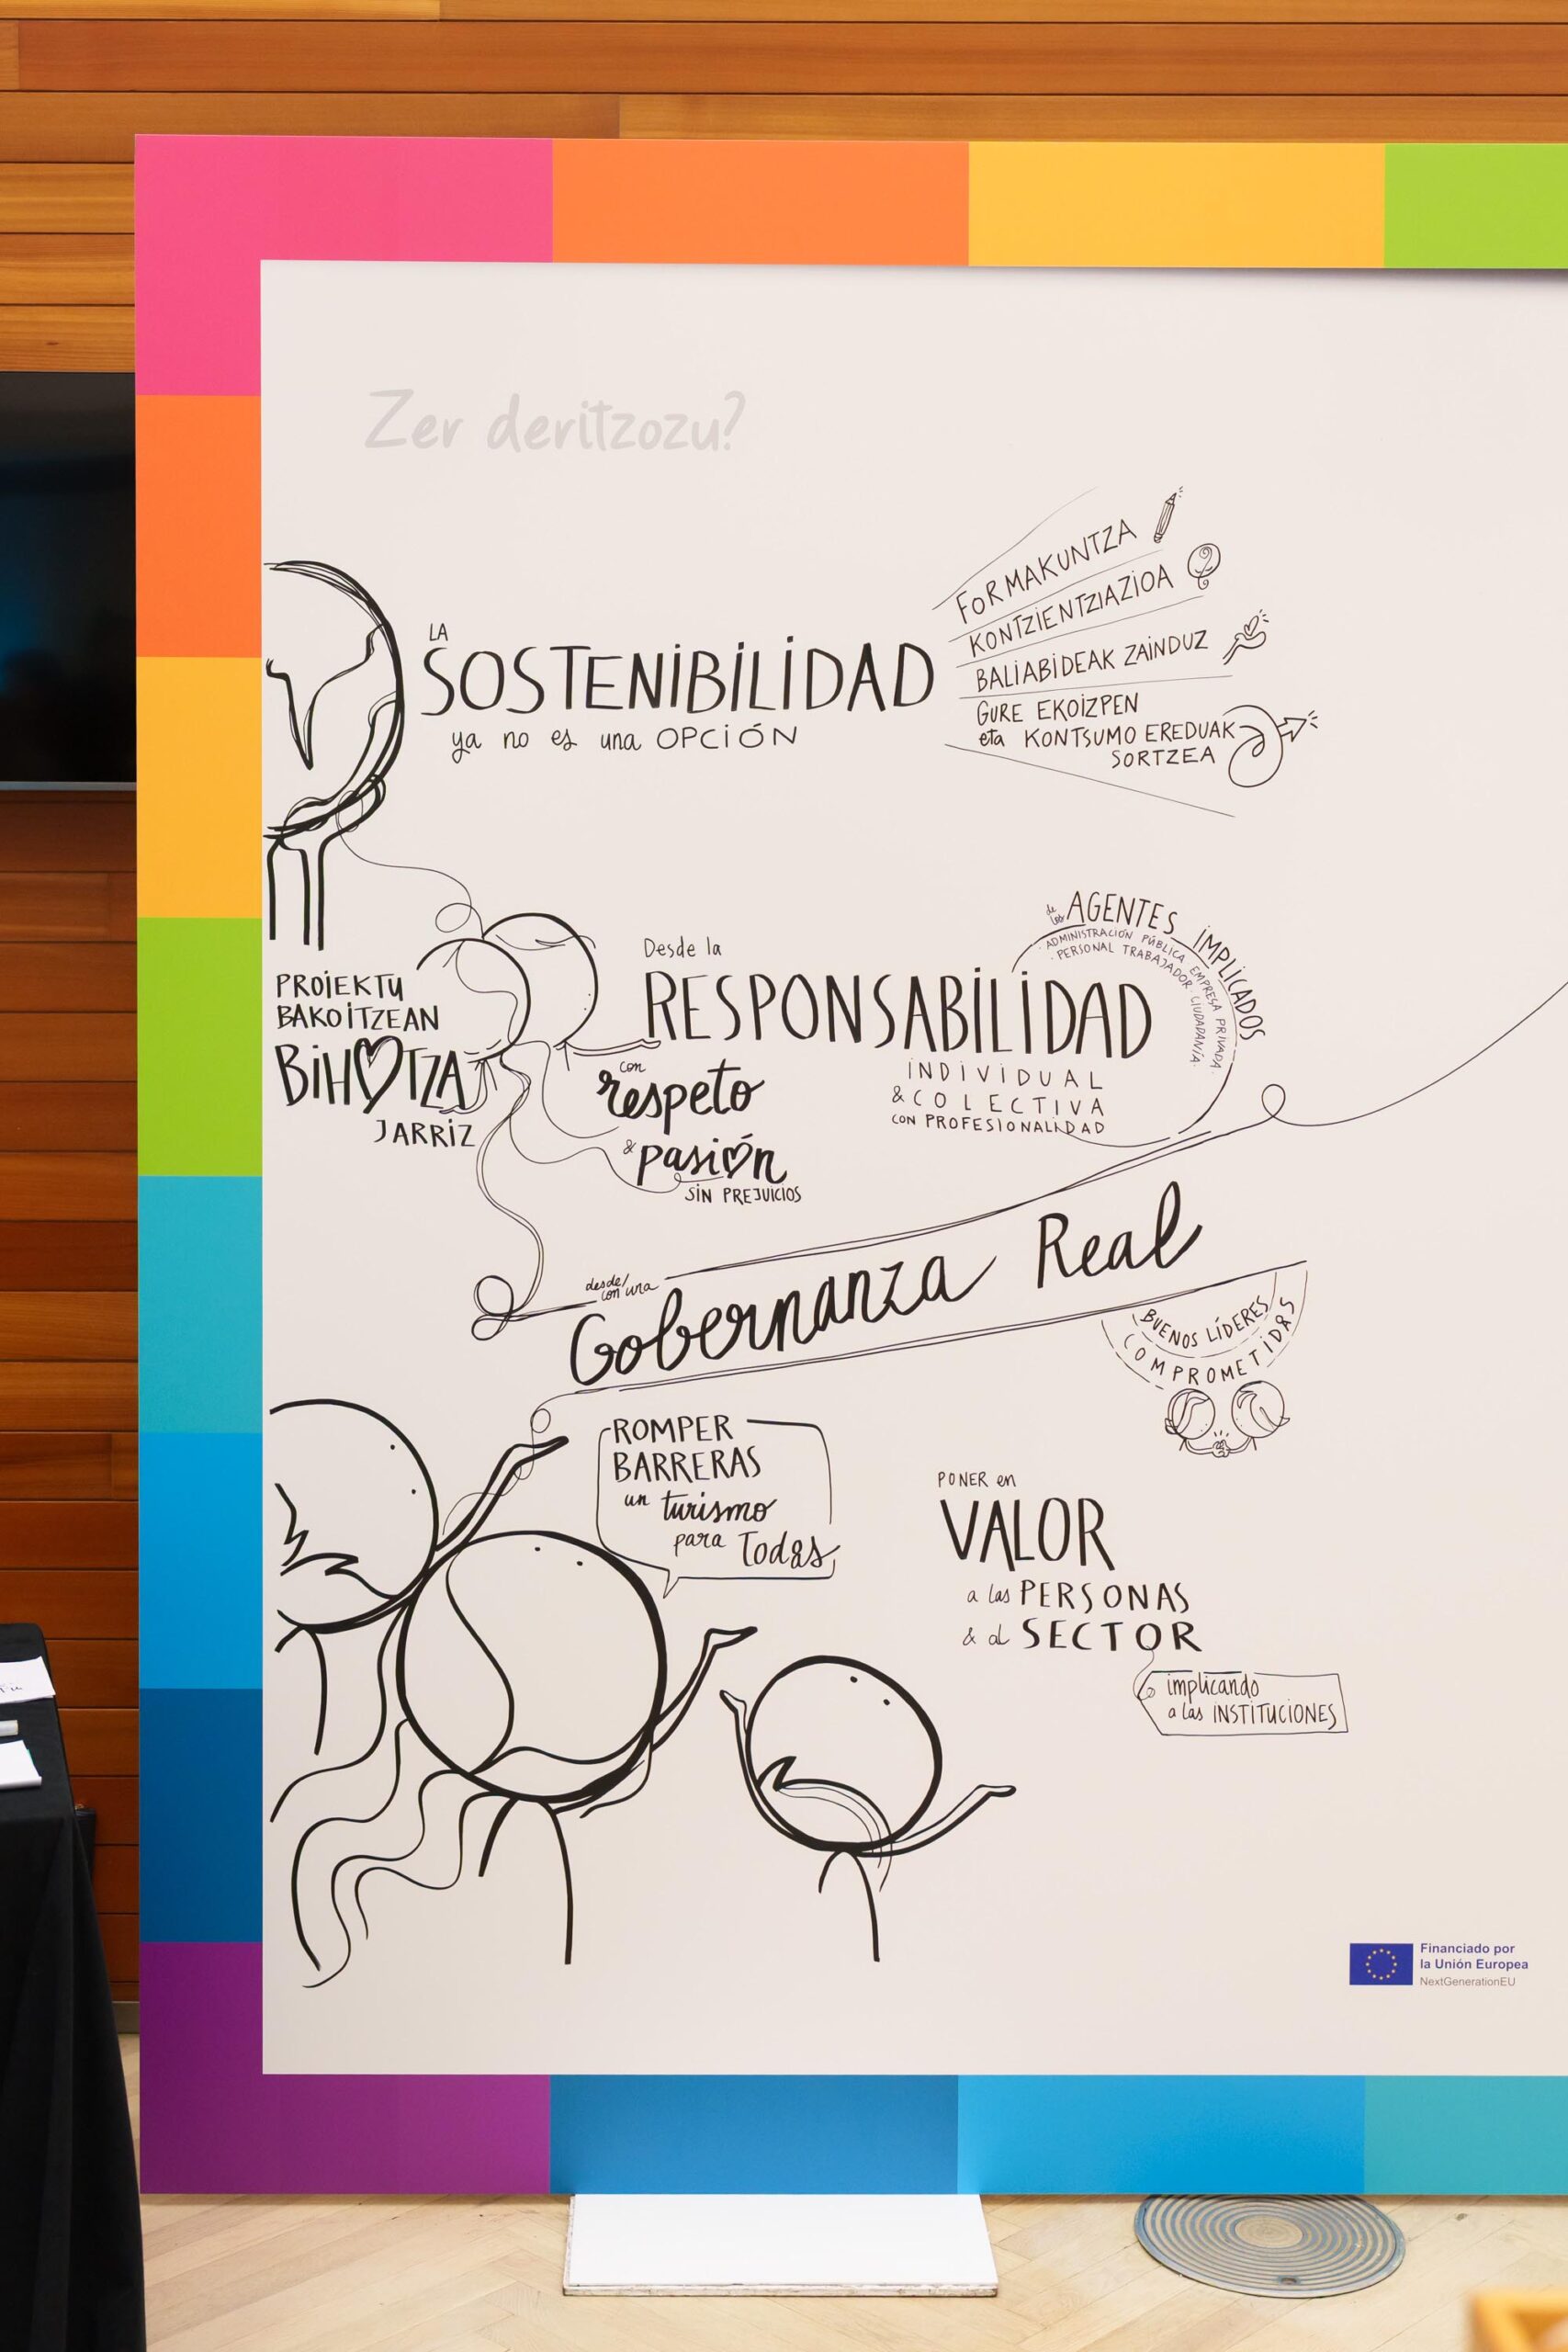 Zer deritzozu?
LA
SOSTENIBILIDAD
ya no es una OPCIÓN
FORMAKUNTZA
KONTZIENTZIAZIOA
BALIABIDEAK ZAINDUZ
GURE EKOIZPEN
eta KONTSUMO EREDUAK
SORTZEA
PROIEKTU
BAKOITZEAN
BIHOTZA
JARRIZ
Desde la
RESPONSABILIDAD
de los AGENTES IMPLICADOS
· ADMINISTRACIÓN PÚBLICA · EMPRESA PRIVADA
· PERSONAL TRABAJADOR · CIUDADANÍA
INDIVIDUAL
& COLECTIVA
CON PROFESIONALIDAD
con
respeto
& pasión
SIN PREJUICIOS
desde/
con una
Gobernanza Real
BUENOS LÍDERES
COMPROMETID@S
ROMPER
BARRERAS
un turismo
para Tod@s
PONER en
VALOR
a las PERSONAS
& al SECTOR
implicando
a las INSTITUCIONES
Financiado por
la Unión Europea
NextGenerationEU